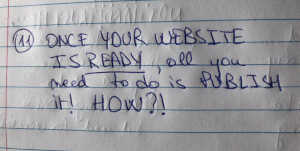 11 ONCE YOUR WEBSITE
IS READY, all you
need to do is PUBLISH
it! HOW?!